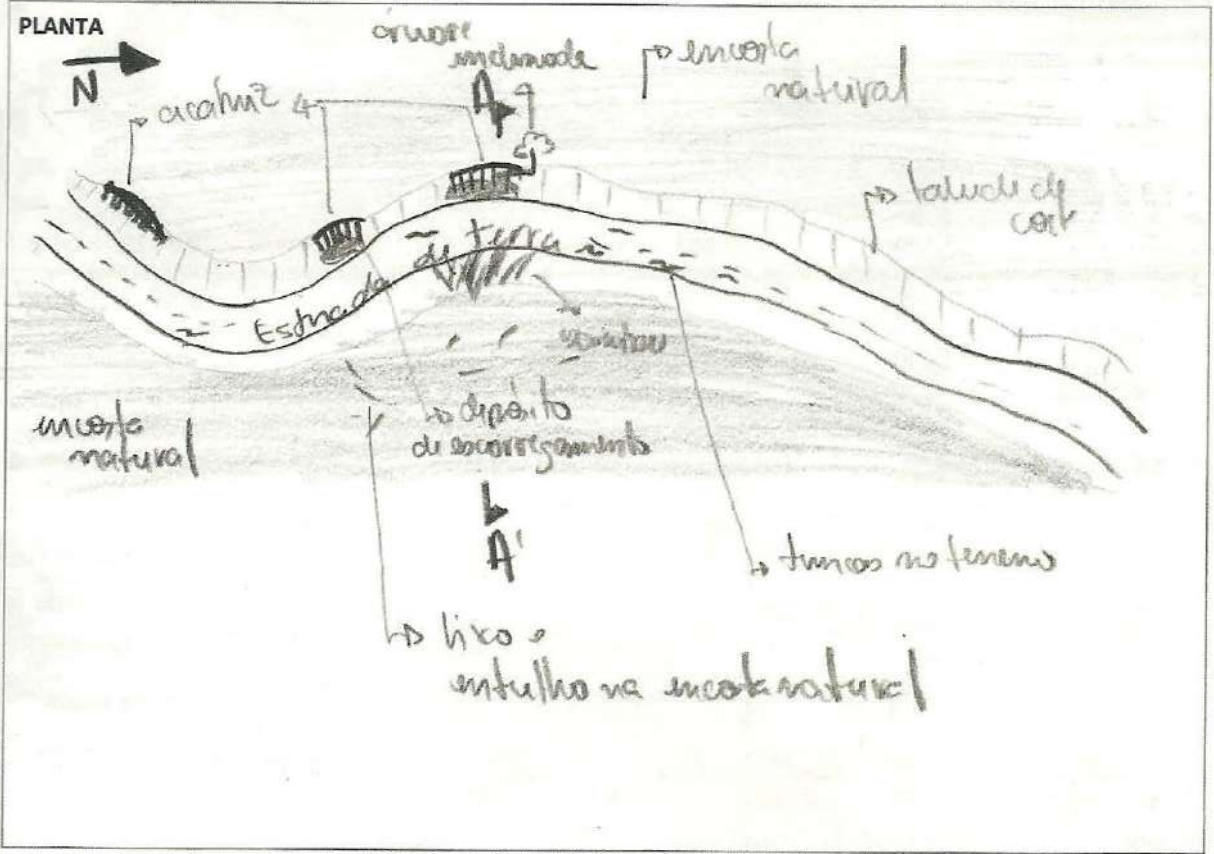 PLANTA
N
árvore
inclinada
A
encosta
natural
cicatriz
talude de
corte
Estrada de terra
encosta
natural
depósito
de escorregamento
A'
trincas no terreno
lixo e
entulho na encosta natural